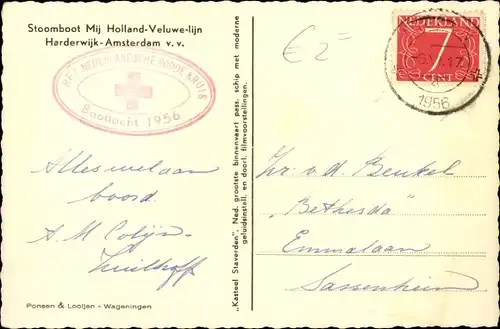 Stoomboot Mij Holland-Veluwe-lijn
Harderwijk-Amsterdam v.v.
HET NEDERLANDSCHE ROODE KRUIS
Boottocht 1956
€ 2=
NEDERLAND
7
CENT
1956
Alles wel aan
boord.
A.M. Colijn-
Zuilhoff
"Kasteel Staverden" Ned. grootste binnenvaart pass. schip met moderne
geluidsinstall. en doorl. filmvoorstellingen.
v. d. Beukel
"Bethesda"
Emmalaan
Sassenheim
Ponsen & Looijen - Wageningen